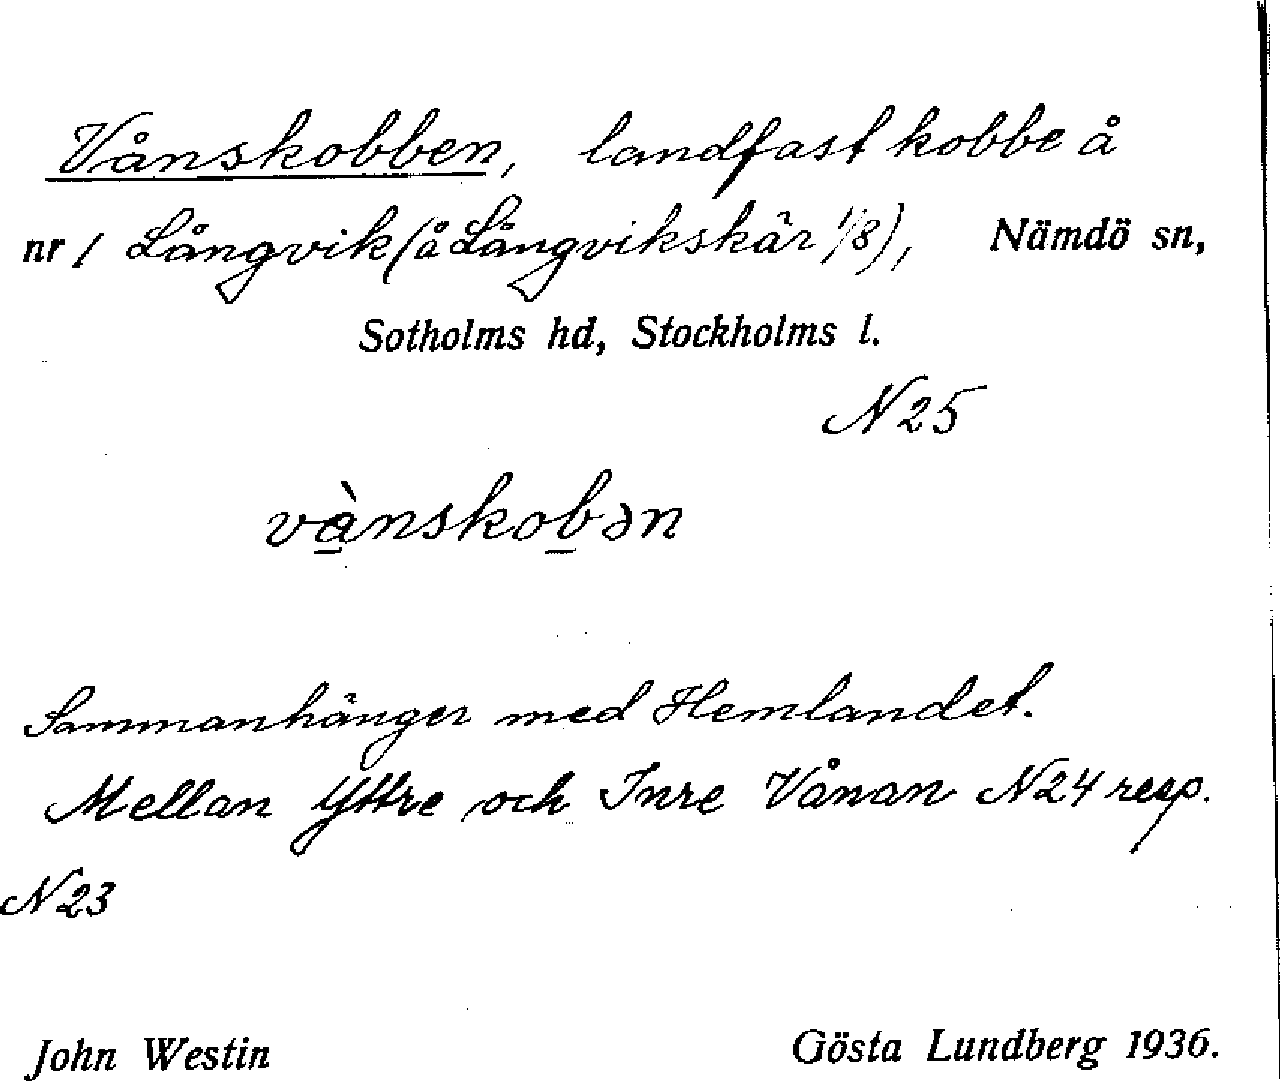 Vånskobben, landfast kobbe å
nr 1 Långvik (å Långvikskär 1/8), Nämdö sn,
Sotholms hd, Stockholms l.
N 25
vànskobən
Sammanhänger med Hemlandet.
Mellan Yttre och Inre Vånan N24 resp.
N 23
John Westin Gösta Lundberg 1936.